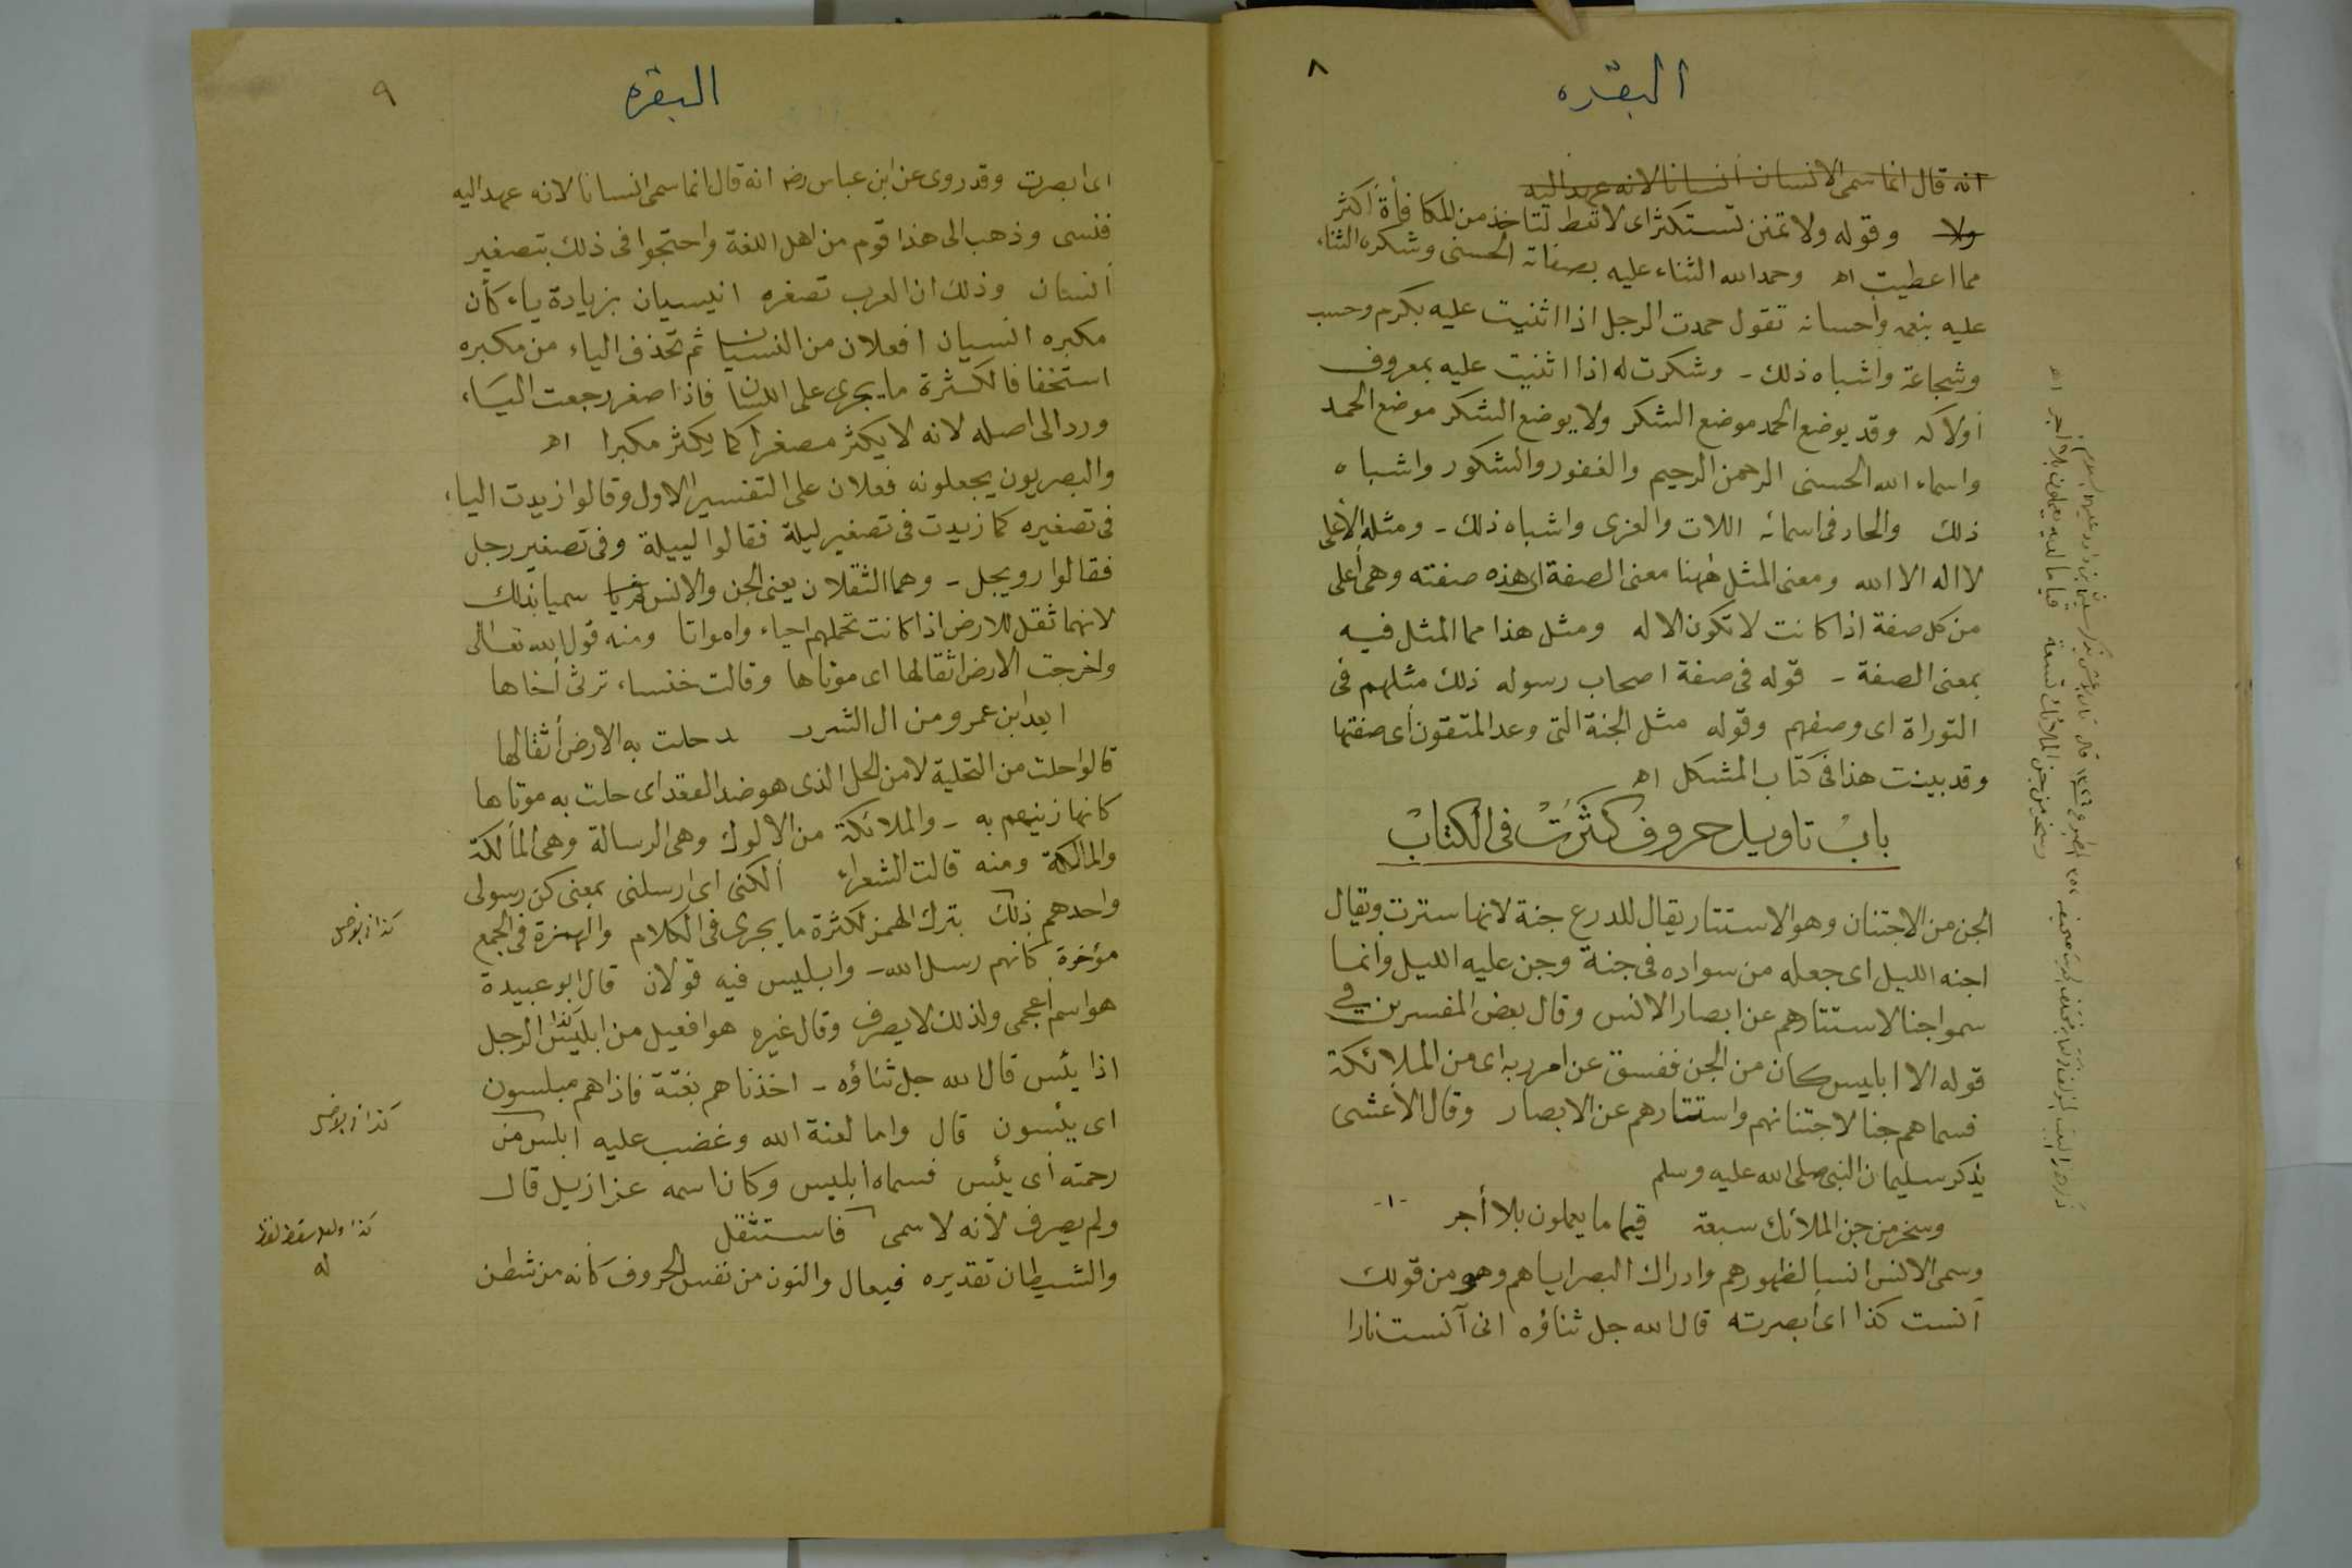 ٨
البقره
انه قال انما سمى الانسان انسانا لانه عهد اليه
ولا وقوله ولا تمنن تستكثر اى لا تعط لتاخذ من المكافأة اكثر
مما اعطيت اه وحمد الله الثناء عليه بصفاته الحسنى وشكره الثناء
عليه بنعمه واحسانه تقول حمدت الرجل اذا اثنيت عليه بكرم وحسب
وشجاعة واشباه ذلك - وشكرت له اذا اثنيت عليه بمعروف
اولاكه وقد يوضع الحمد موضع الشكر ولا يوضع الشكر موضع الحمد
واسماء الله الحسنى الرحمن الرحيم والغفور والشكور واشباه
ذلك والحاد فى اسمائه اللات والعزى واشباه ذلك - ومثله الأعلى
لا اله الا الله ومعنى المثل ههنا معنى الصفة اى هذه صفته وهى أعلى
من كل صفة اذا كانت لا تكون الا له ومثل هذا مما المثل فيه
بمعنى الصفة - قوله فى صفة اصحاب رسوله ذلك مثلهم فى
التوراة اى وصفهم وقوله مثل الجنة التى وعد المتقون أى صفتها
وقد بينت هذا فى كتاب المشكل اه
باب تاويل حروف كثرت فى الكتاب
الجن من الاجتنان وهو الاستتار يقال للدرع جنة لانها سترت ويقال
اجنه الليل اى جعله من سواده فى جنة وجن عليه الليل وانما
سموا جنا لاستتارهم عن ابصار الانس وقال بعض المفسرين في
قوله الا ابليس كان من الجن ففسق عن امر ربه اى من الملائكة
فسماهم جنا لاجتنانهم واستتارهم عن الابصار وقال الأعشى
يذكر سليمان النبى صلى الله عليه وسلم
وسخر من جن الملائك سبعة قيما ما يعملون بلا أجر -١-
وسمى الانس انسا لظهورهم وادراك البصر اياهم وهو من قولك
آنست كذا اى أبصرته قال الله جل ثناؤه انى آنست نارا
٩
البقره
اى ابصرت وقد روى عن ابن عباس رضه انه قال انما سمى انسانا لانه عهد اليه
فنسى وذهب الى هذا قوم من اهل اللغة واحتجوا فى ذلك بتصغير
انسان وذلك ان العرب تصغره انيسيان بزيادة ياء كأن
مكبره انسيان افعلان من النسيان ثم تحذف الياء من مكبره
استخفافا لكثرة ما يجرى على اللسان فاذا صغر رجعت الياء
ورد الى اصله لانه لا يكثر مصغرا كما يكثر مكبرا اه
والبصريون يجعلونه فعلان على التفسير الاول وقالوا زيدت الياء
فى تصغيره كما زيدت فى تصغير ليلة فقالوا لييلة وفى تصغير رجل
فقالوا رويجل - وهما الثقلان يعنى الجن والانس سميا بذلك
لانهما ثقل للارض اذا كانت تحملهم احياء وامواتا ومنه قول الله تعالى
واخرجت الارض اثقالها اى موتاها وقالت خنساء ترثى أخاها
ابعد ابن عمرو من ال الشريد حلت به الارض أثقالها
قالوا حلت من التحلية لا من الحل الذى هو ضد العقد اى حلت به موتاها
كانها زينهم به - والملائكة من الالوك وهى الرسالة وهى المألكة
والمالكة ومنه قالت الشعراء ألكنى اى ارسلنى بمعنى كن رسولى
واحدهم ذلك بترك الهمز لكثرة ما يجرى فى الكلام والهمزة فى الجمع
مؤخرة كانهم رسل الله - وابليس فيه قولان قال ابو عبيدة
هو اسم أعجمى ولذلك لا يصرف وقال غيره هو افعيل من ابليس الرجل
اذا يئس قال الله جل ثناؤه - اخذناهم بغتة فاذا هم مبلسون
اى يئسون قال واما لعنة الله وغضب عليه ابلس من
رحمته أى يئس فسماه ابليس وكان اسمه عزازيل قال
ولم يصرف لأنه لا سمى فاستثقل
والشيطان تقديره فيعال والنون من نفس الحروف كأنه من شطن
كذا فى الاصل
كذا فى الاصل
كذا ولعله سقط لفظ
له